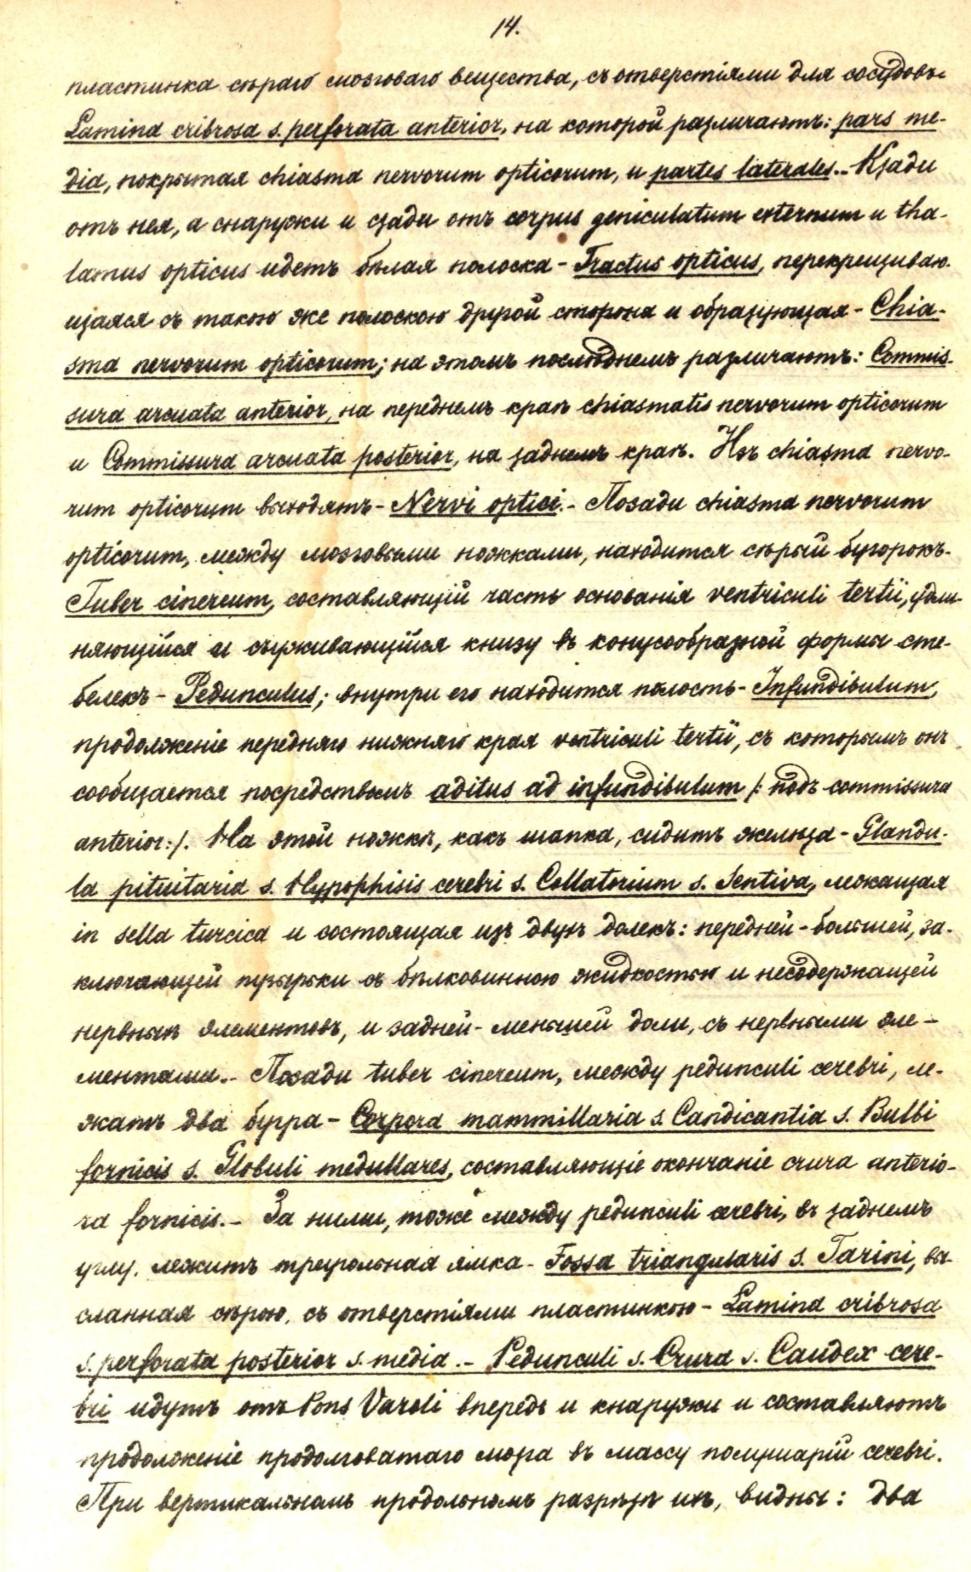 14.
пластинка сѣраго мозговаго вещества, съ отверстіями для сосудовъ-
Lamina cribrosa s. perforata anterior, на которой различаютъ: pars me-
dia, покрытая chiasma nervorum opticorum, и partes laterales.- Кзади
отъ нея, а снаружи и сзади отъ corpus geniculatum externum и tha-
lamus opticus идетъ бѣлая полоска - Tractus opticus, перекрещиваю-
щаяся съ такою же полоскою другой стороны и образующая - Chia-
sma nervorum opticorum; на этомъ послѣднемъ различаютъ: Commis-
sura arcuata anterior, на переднемъ краѣ chiasmatis nervorum opticorum
и Commissura arcuata posterior, на заднемъ краѣ. Изъ chiasma nervo-
rum opticorum выходятъ - Nervi optici.- Позади chiasma nervorum
opticorum, между мозговыми ножками, находится сѣрый бугорокъ-
Tuber cinereum, составляющій часть основанія ventriculi tertii, удли-
няющійся и съуживающійся книзу въ конусообразной формы сте-
белекъ - Pedunculus; внутри его находится полость - Infundibulum,
продолженіе передняго нижняго края ventriculi tertii, съ которымъ онъ
сообщается посредствомъ aditus ad infundibulum /: подъ commissura
anterior:/. На этой ножкѣ, какъ шапка, сидитъ железа - Glandu-
la pituitaria s. Hypophisis cerebri s. Collatorium s. Sentina, лежащая
in sella turcica и состоящая изъ двухъ долекъ: передней - большей, за-
ключающей пузырьки съ бѣлковинною жидкостью и несодержащей
нервныхъ элементовъ, и задней - меньшей доли, съ нервными эле-
ментами.- Позади tuber cinereum, между pedunculi cerebri, ле-
жатъ два бугра - Corpora mammillaria s. Candicantia s. Bulbi
fornicis s. Globuli medullares, составляющіе окончаніе crura anterio-
ra fornicis.- За ними, тоже между pedunculi cerebri, въ заднемъ
углу, лежитъ треугольная ямка - Fossa triangularis s. Tarini, вы-
сланная сѣрою, съ отверстіями пластинкою - Lamina cribrosa
s. perforata posterior s. media.- Pedunculi s. Crura s. Caudex cere-
bri идутъ отъ Pons Varoli впередъ и кнаружи и составляютъ
продолженіе продолговатаго мозга въ массу полушарій cerebri.
При вертикальномъ продольномъ разрѣзѣ ихъ, видны: два